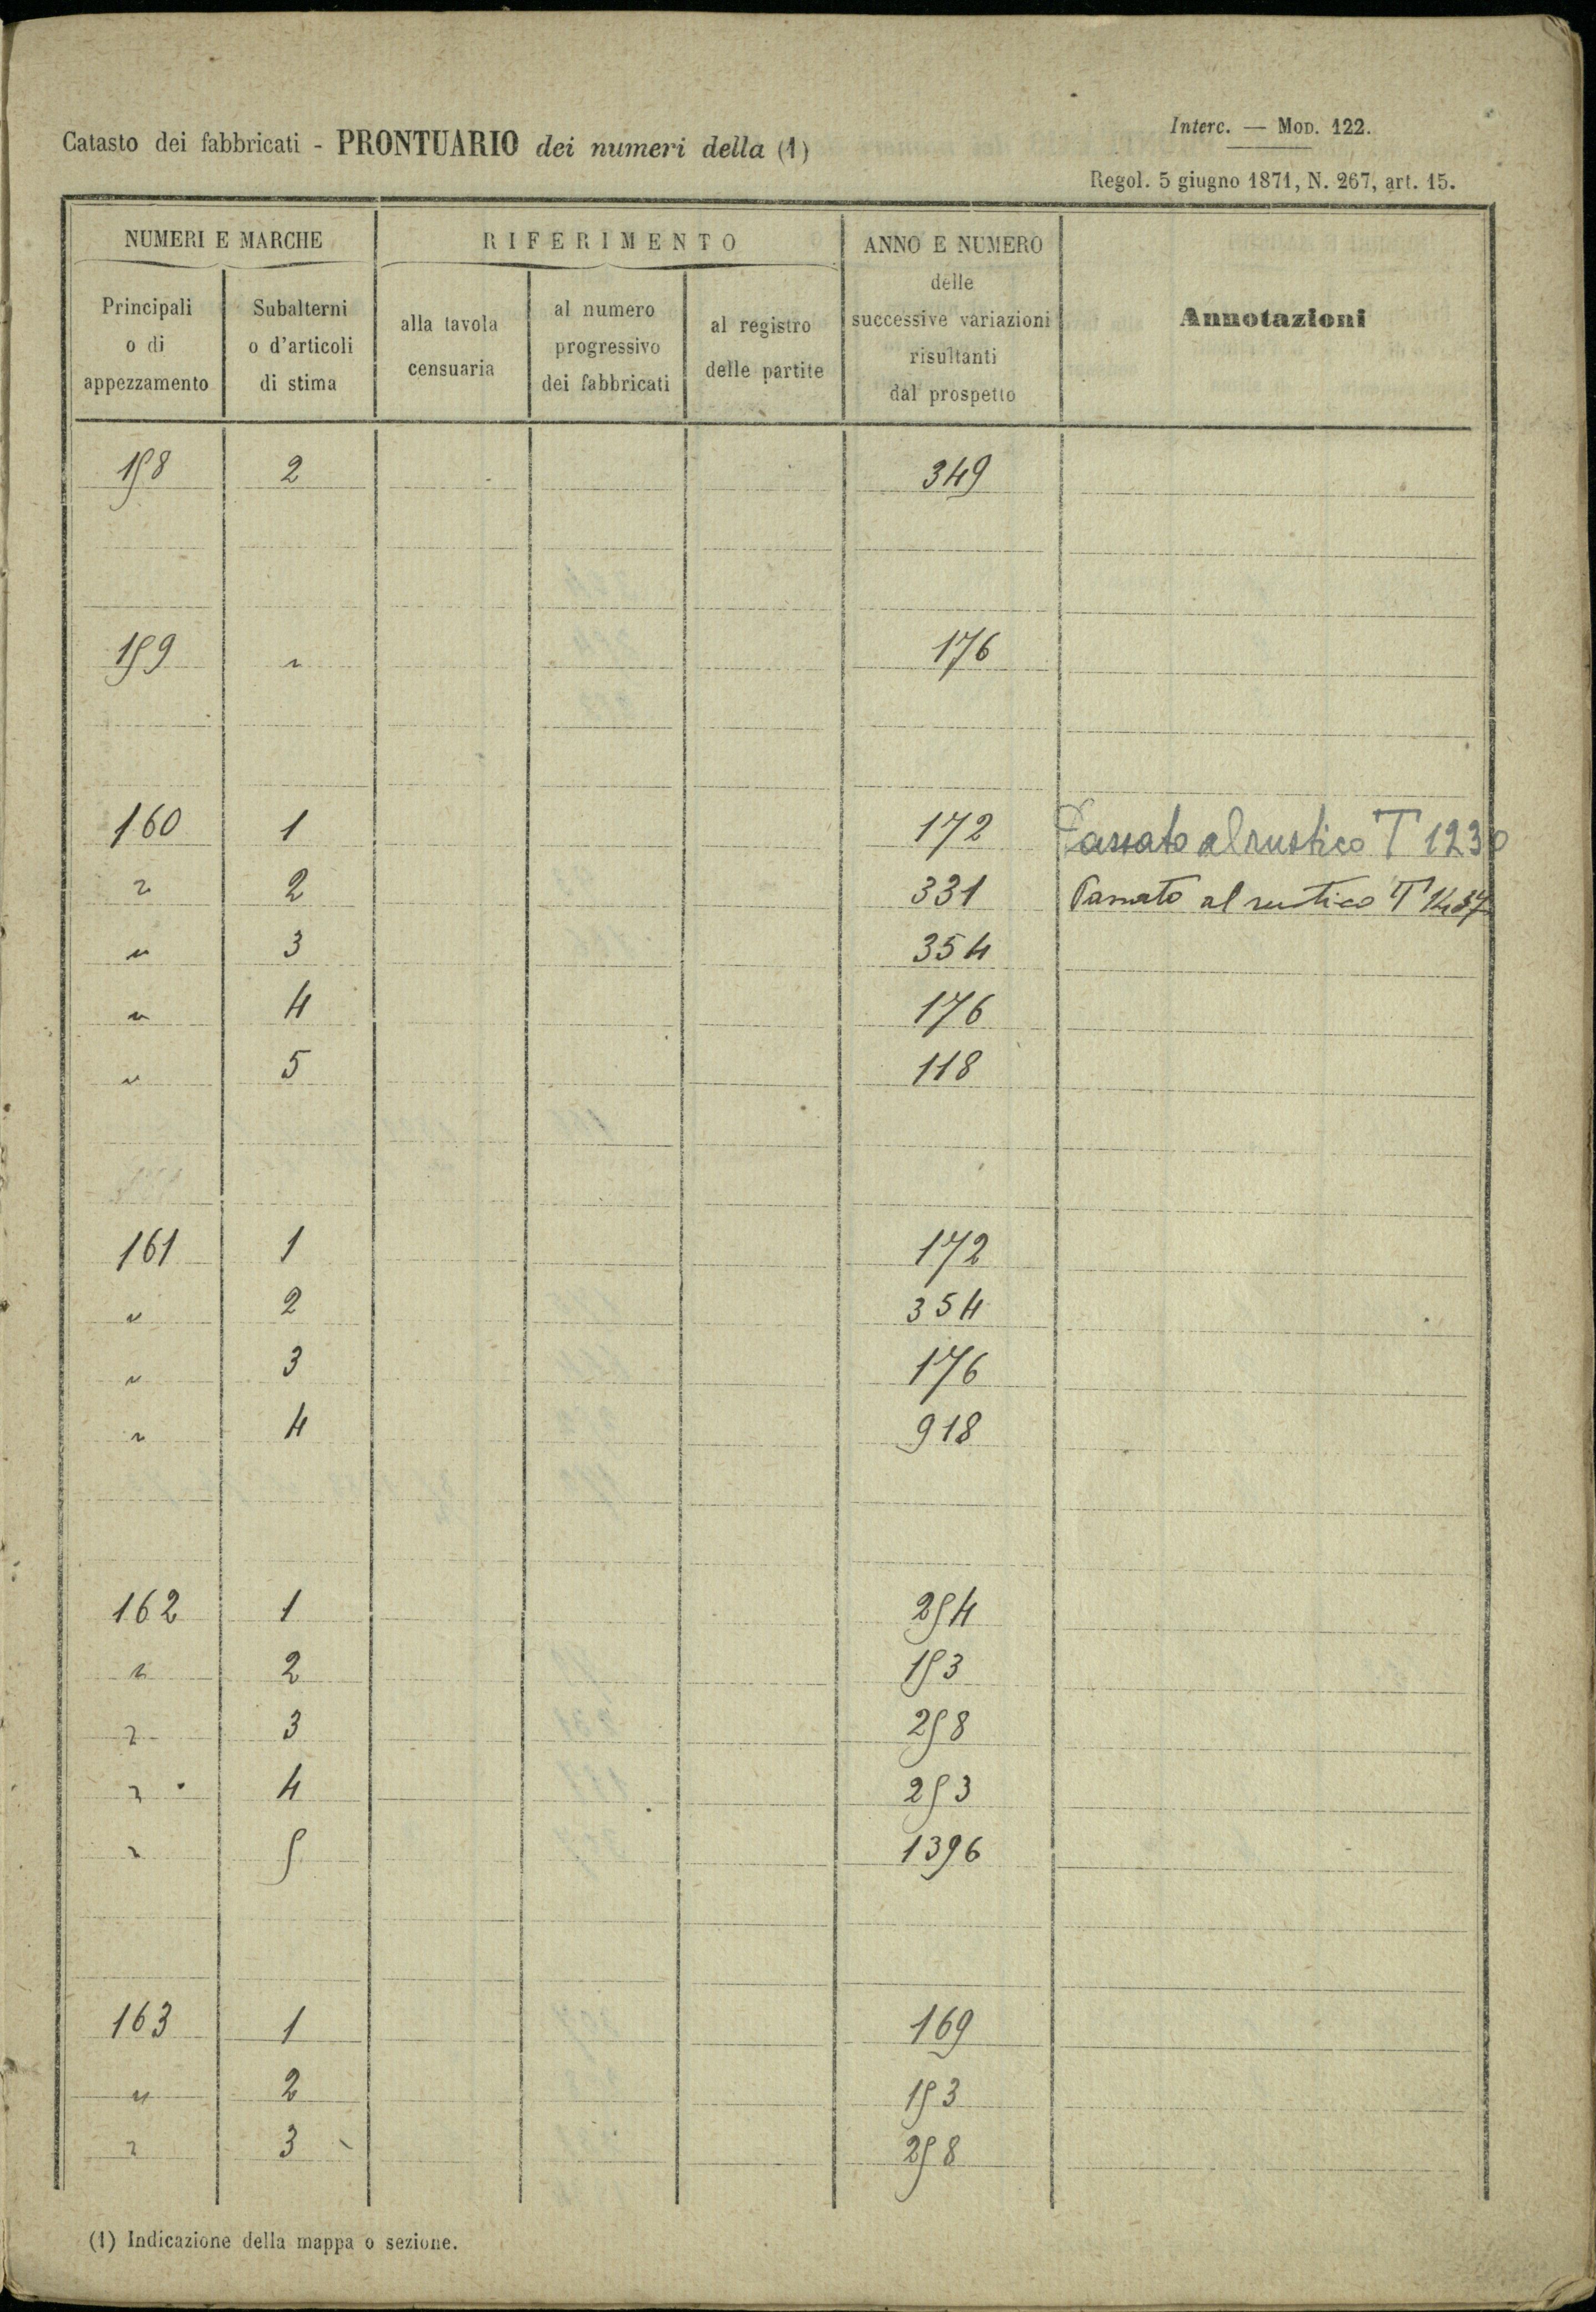 Catasto dei fabbricati - PRONTUARIO dei numeri della (1)
Interc. — Mod. 122.
Regol. 5 giugno 1871, N. 267, art. 15.
NUMERI E MARCHE
RIFERIMENTO
ANNO E NUMERO
delle
successive variazioni
risultanti
dal prospetto
Annotazioni
Principali
o di
appezzamento
Subalterni
o d'articoli
di stima
alla tavola
censuaria
al numero
progressivo
dei fabbricati
al registro
delle partite
158 2 349
159 " 176
160 1 172 Passato al rustico T 1230
" 2 331 Passato al rustico T
" 3 354
" 4 176
" 5 118
161 1 172
" 2 354
" 3 176
" 4 918
162 1 254
" 2 153
" 3 258
" 4 253
" 5 1396
163 1 169
" 2 153
" 3 258
(1) Indicazione della mappa o sezione.